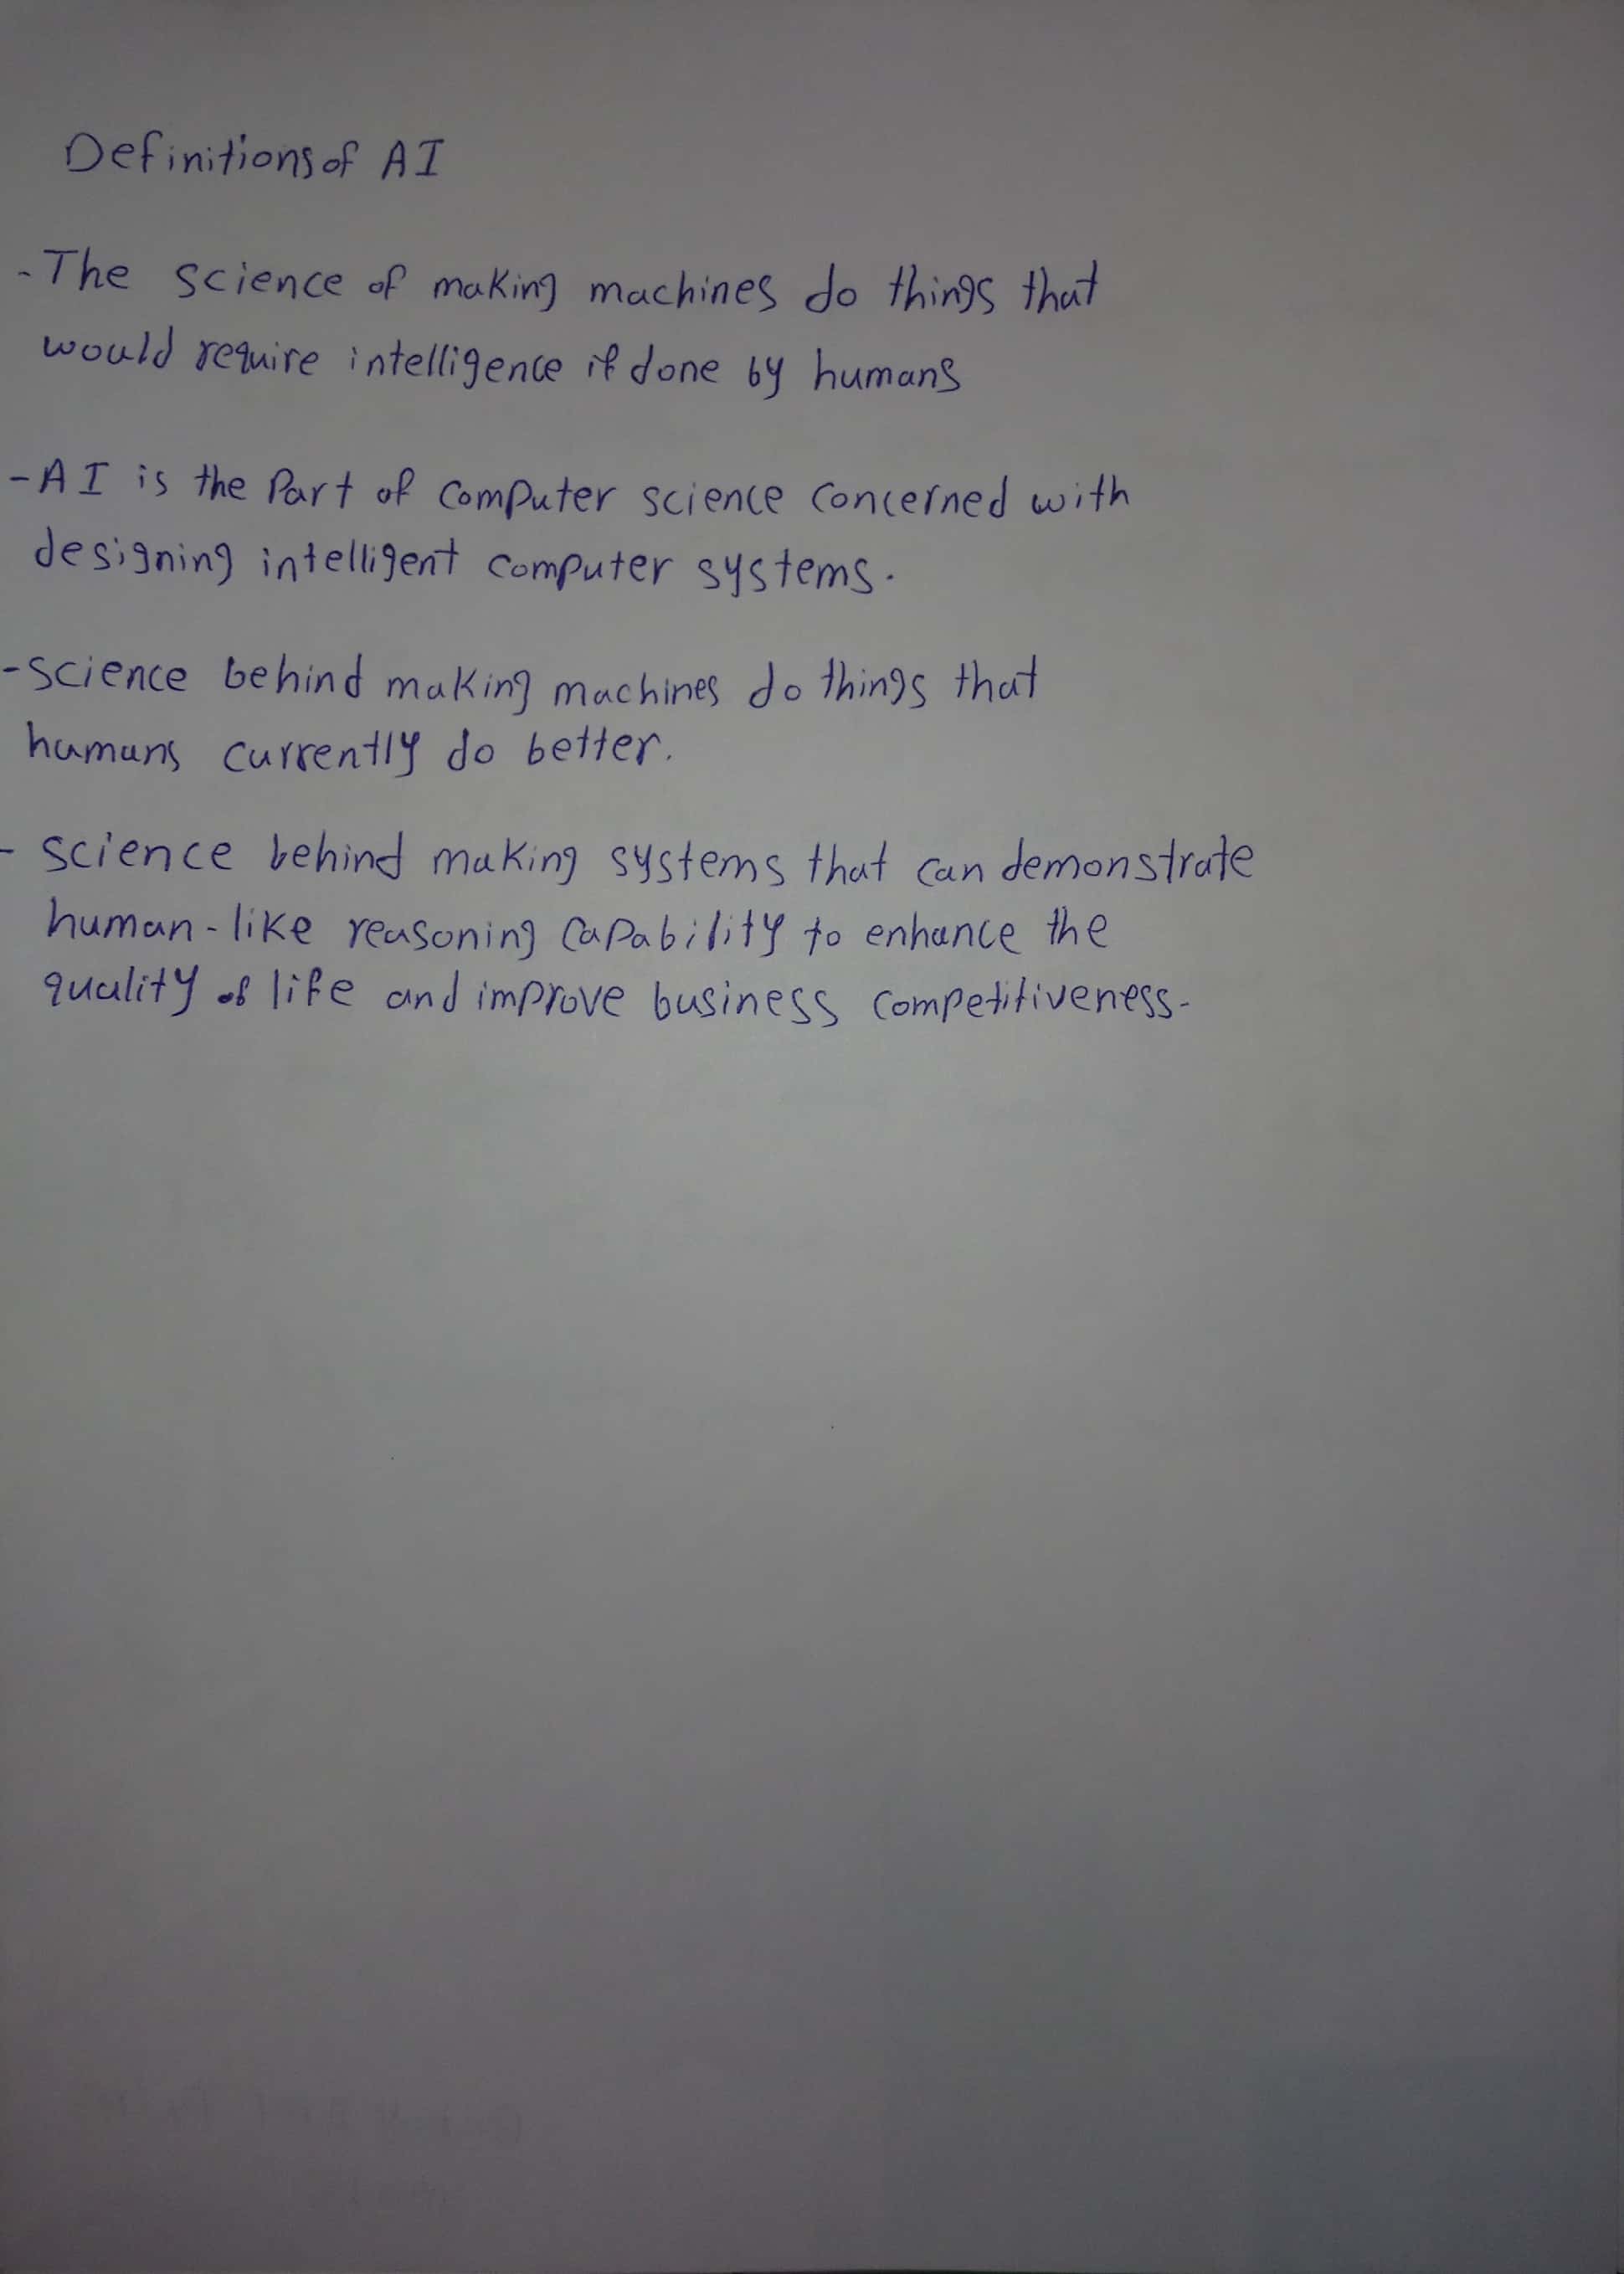 Definitions of AI
- The science of making machines do things that
would require intelligence if done by humans
- AI is the Part of computer science concerned with
designing intelligent computer systems.
- science behind making machines do things that
humans currently do better.
- science behind making systems that can demonstrate
human-like reasoning capability to enhance the
quality of life and improve business competitiveness.